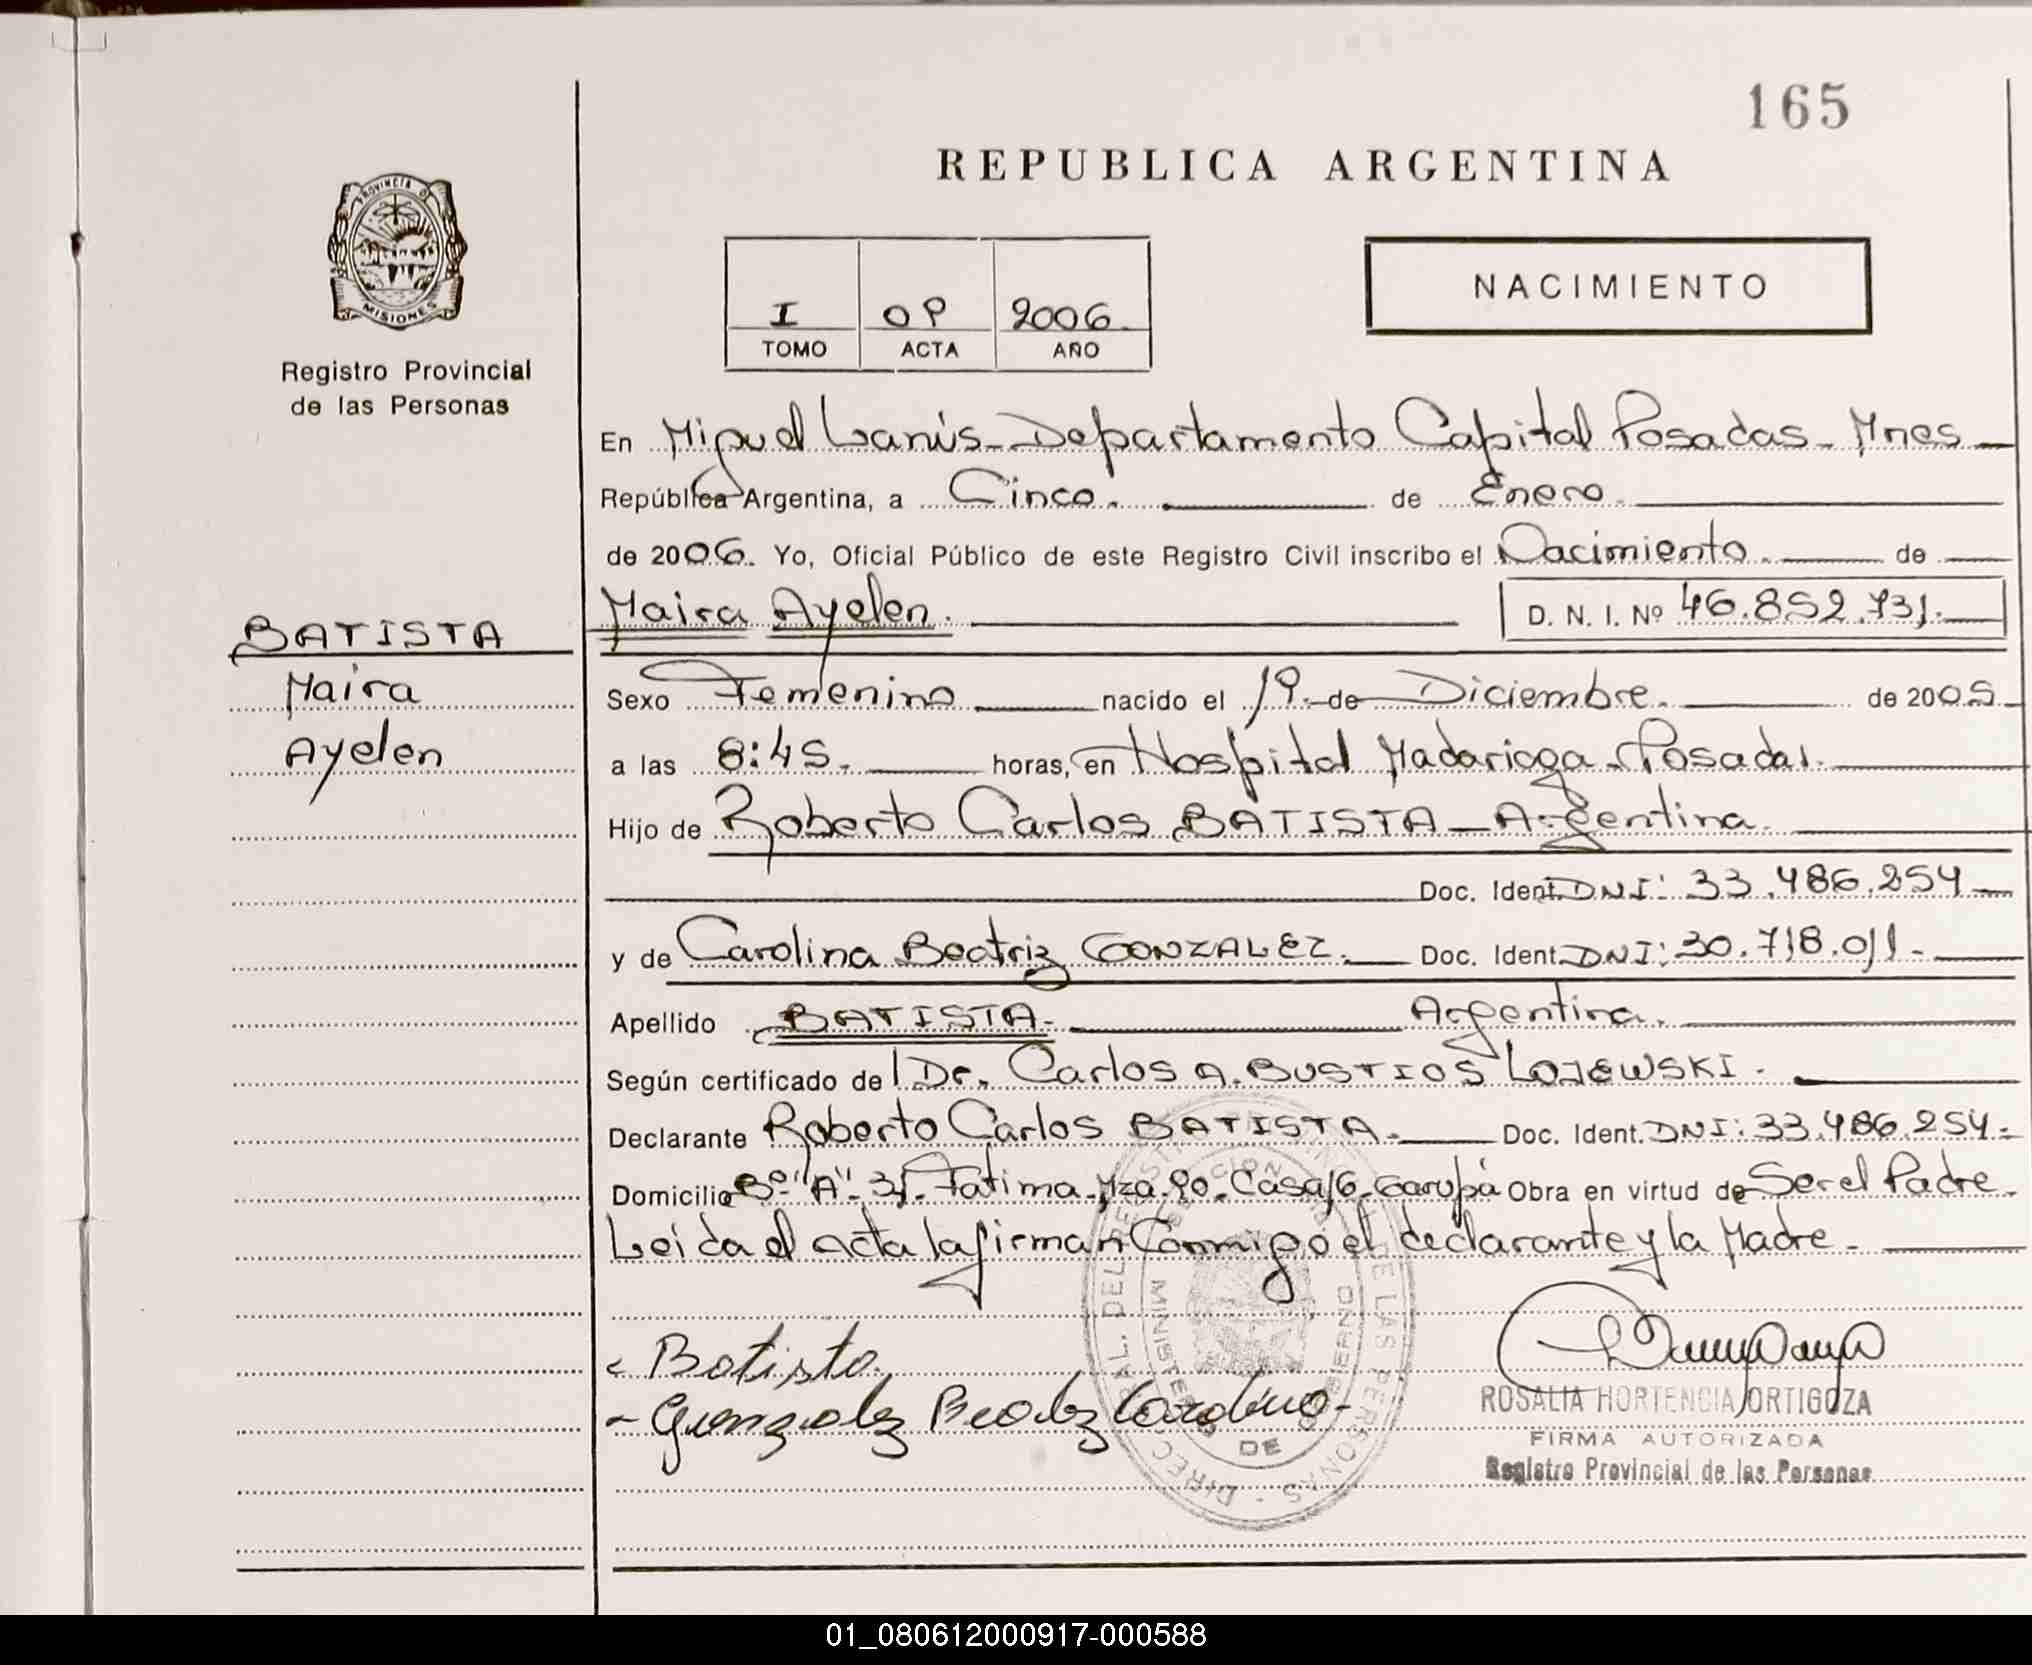 165
REPUBLICA ARGENTINA
PROVINCIA DE
MISIONES
Registro Provincial
de las Personas
I 09 2006
TOMO ACTA AÑO
NACIMIENTO
En Miguel Lanús - Departamento Capital Posadas - Mnes
República Argentina, a Cinco. de Enero.
de 2006. Yo, Oficial Público de este Registro Civil inscribo el Nacimiento. de
Maira Ayelen. D. N. I. Nº 46.852.731.
BATISTA
Maira
Ayelen
Sexo Femenino nacido el 19 de Diciembre. de 2005
a las 8:45. horas, en Hospital Madariaga - Posadas.
Hijo de Roberto Carlos BATISTA - Argentina.
Doc. Ident. DNI: 33.486.254
y de Carolina Beatriz GONZALEZ. Doc. Ident. DNI: 30.718.011.
Apellido BATISTA. Argentina.
Según certificado de Dr. Carlos A. BUSTIOS LOJEWSKI.
Declarante Roberto Carlos BATISTA. Doc. Ident. DNI: 33.486.254.
Domicilio Bº "A" 31. Fatima Mza. 90. Casa 16. Garupá Obra en virtud de Ser el Padre.
Leida el acta la firman Conmigo el declarante y la Madre.
Batista
Gonzalez Beatriz Carolina
ROSALIA HORTENCIA ORTIGOZA
FIRMA AUTORIZADA
Registro Provincial de las Personas
01_080612000917-000588